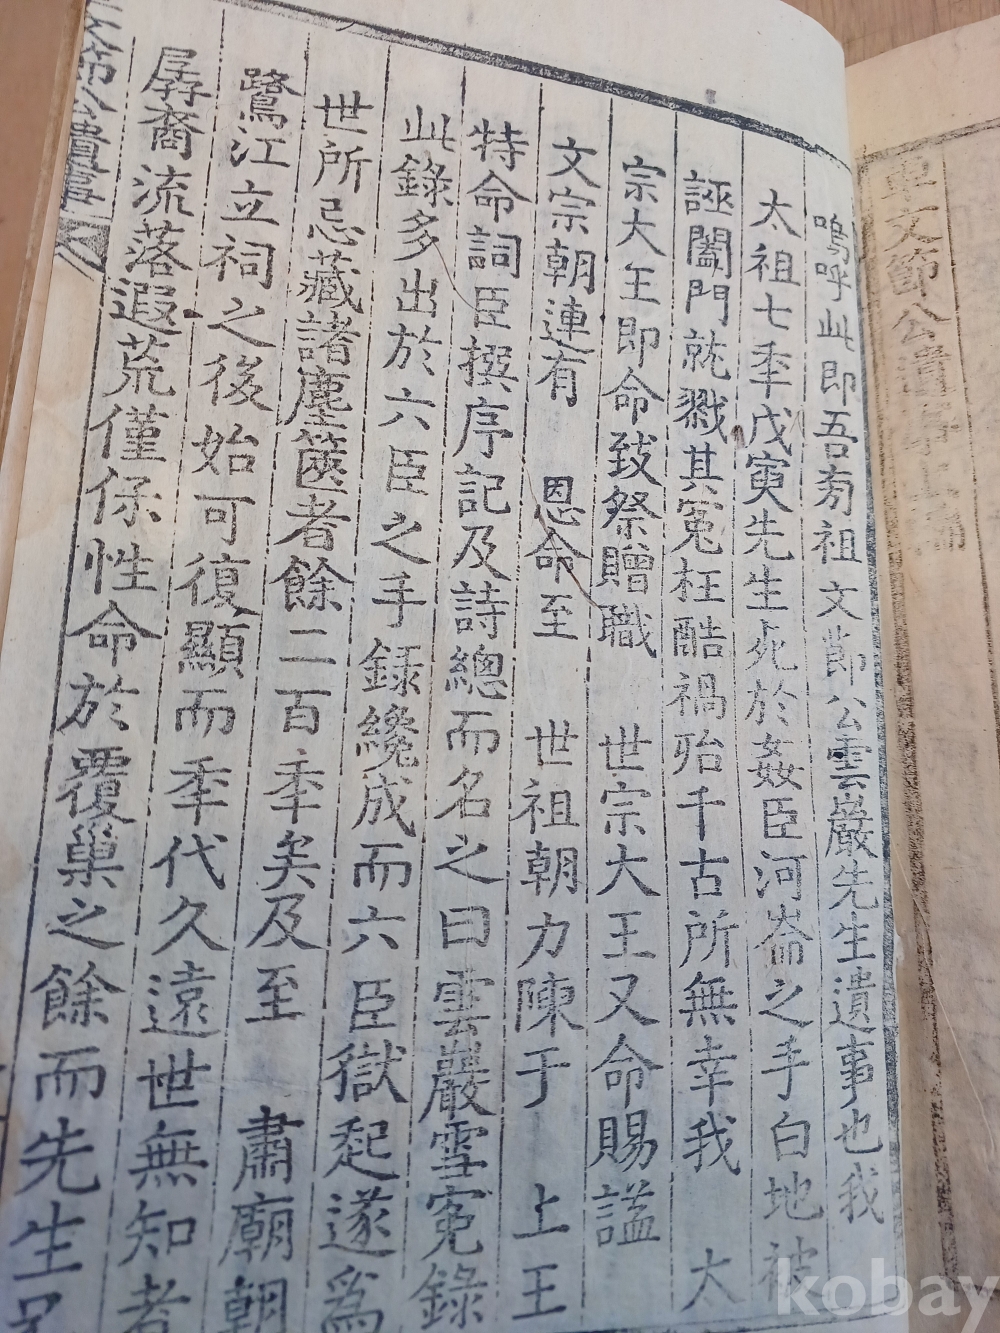 嗚呼此即吾旁祖文節公雲巖先生遺事也我
太祖七季戊寅先生死於姦臣河崙之手白地被
誣闔門就戮其冤枉酷禍殆千古所無幸我 太
宗大王即命致祭贈職 世宗大王又命賜謚
文宗朝連有 恩命至 世祖朝力陳于 上王
特命詞臣撰序記及詩總而名之曰雲巖雪冤錄
此錄多出於六臣之手録纔成而六臣獄起遂爲
世所忌藏諸塵篋者餘二百季矣及至 肅廟朝
鷺江立祠之後始可復顯而季代久遠世無知者
孱裔流落遐荒僅保性命於覆巢之餘而先生
文節公遺事
車文節公遺事
kobay